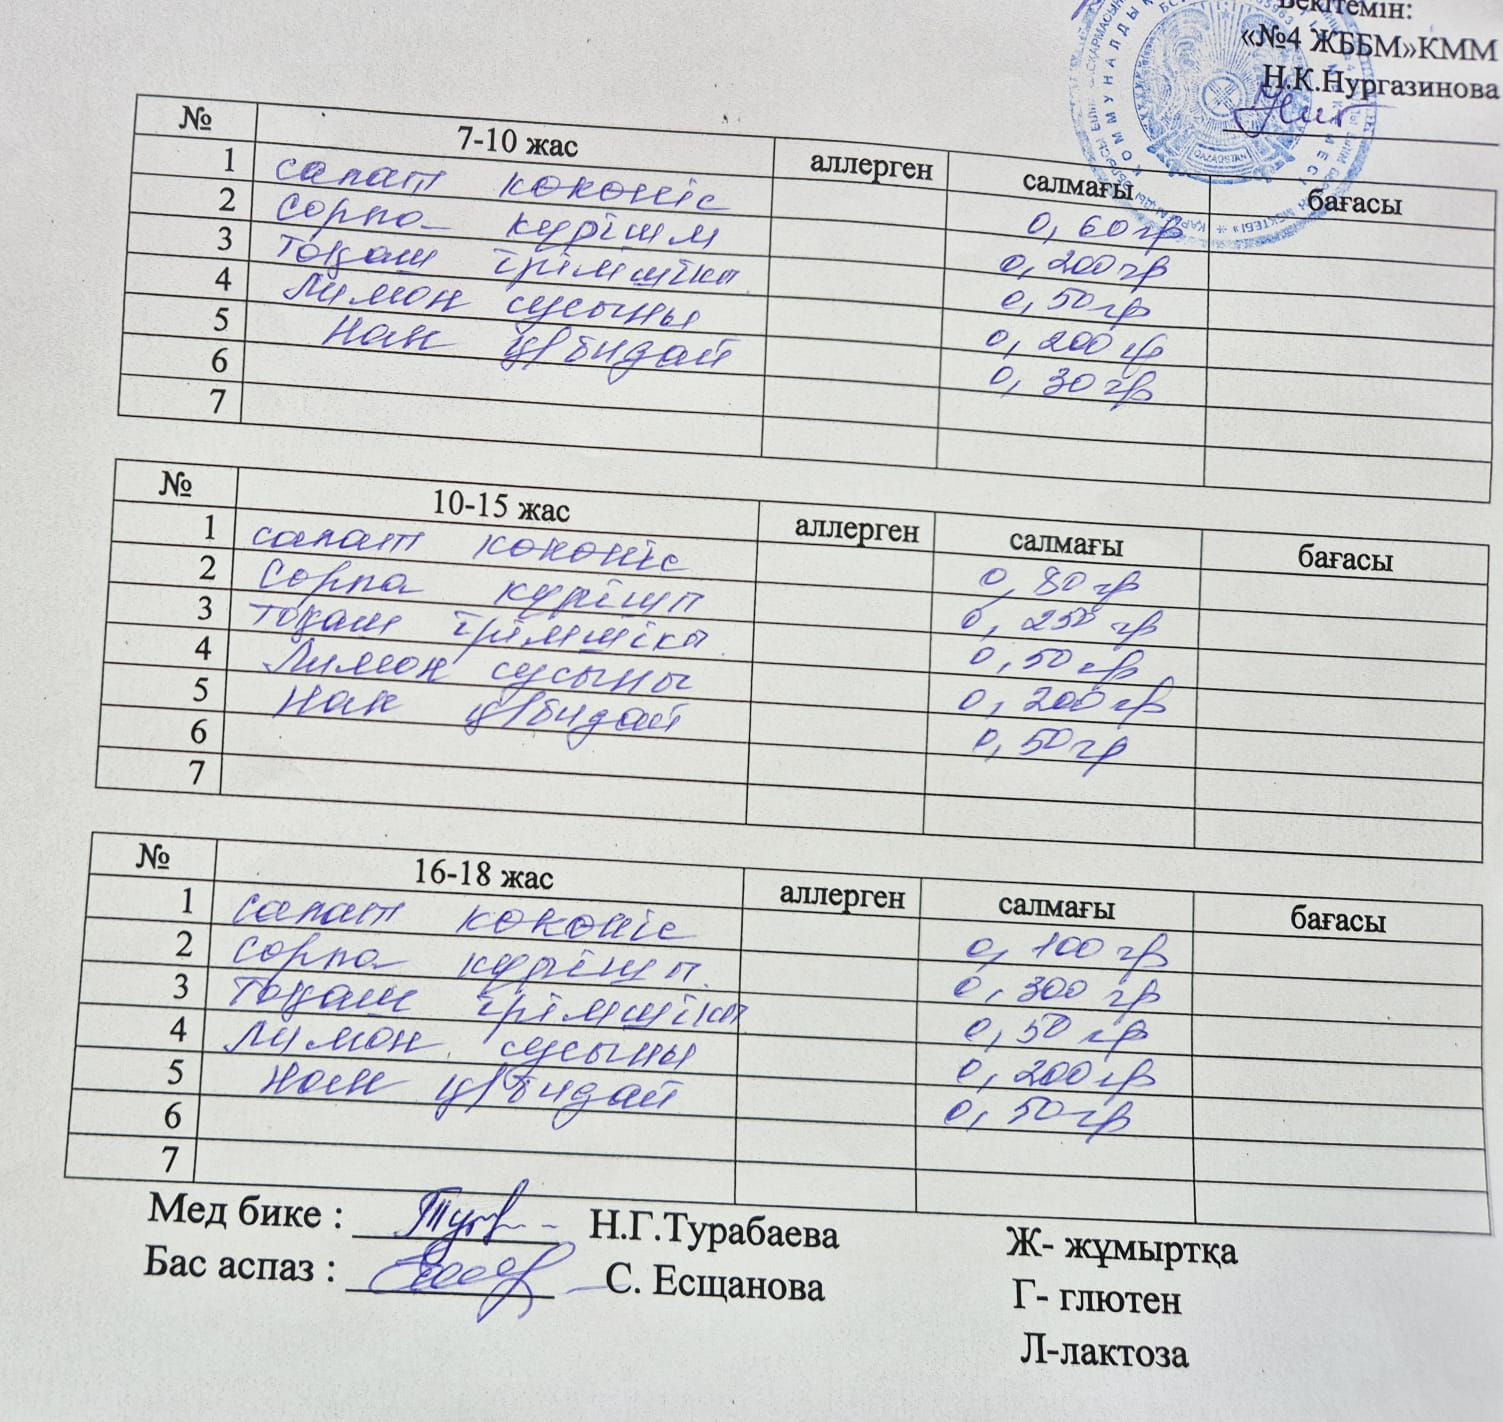 Бекітемін:
«№4 ЖББМ»КММ
Н.К.Нургазинова
QAZAQSTAN
№ 7-10 жас аллерген салмағы бағасы
1 салат көкөніс 0,60гр
2 сорпа күрішп 0,200гр
3 тоқаш ірімшікп 0,50гр
4 Лимон сусыны 0,200гр
5 нан ц/бидай 0,30гр
6
7
№ 10-15 жас аллерген салмағы бағасы
1 салат көкөніс 0,80гр
2 сорпа күрішп 0,250 гр
3 тоқаш ірімшікп. 0,50гр
4 Лимон сусыны 0,200гр
5 нан ц/бидай 0,50гр
6
7
№ 16-18 жас аллерген салмағы бағасы
1 салат көкөніс 0,100 гр
2 сорпа күрішп. 0,300 гр
3 тоқаш ірімшікп 0,50 гр
4 Лимон сусыны 0,200гр
5 нан ц/бидай 0,50гр
6
7
Мед бике : Н.Г.Турабаева Ж- жұмыртқа
Бас аспаз : С. Есщанова Г- глютен
Л-лактоза